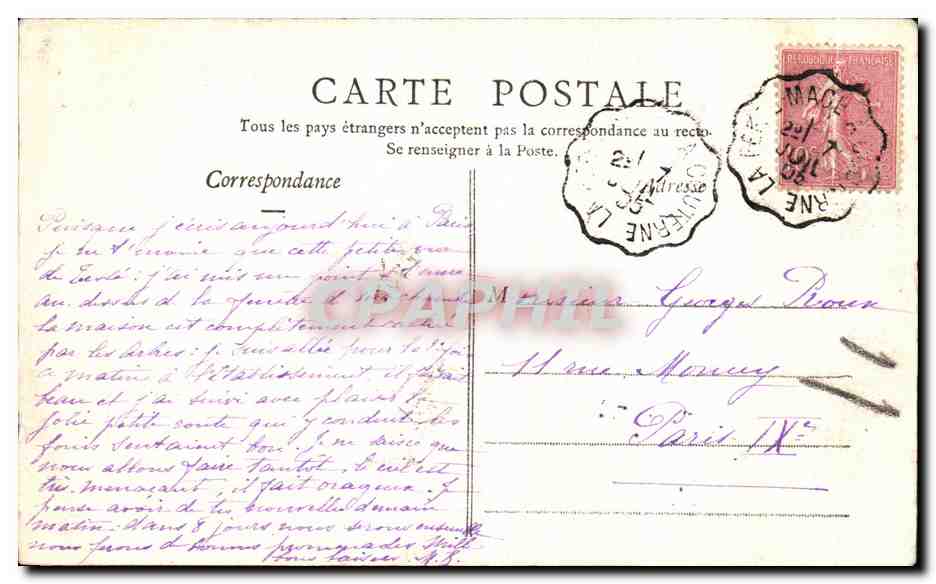 REPUBLIQUE FRANÇAISE
CARTE POSTALE
Tous les pays étrangers n'acceptent pas la correspondance au recto.
Se renseigner à la Poste.
Correspondance
Adresse
Puisque j'écris aujourd'hui à Paris
je ne t'envoie que cette petite vue
de : j'ai mis un point
au dessus de la fenêtre d
la maison est complètement cachée
par les arbres : je suis allée pour la 1e fois
ce matin à l'établissement, il faisait
beau et j'ai suivi avec plaisir la
jolie petite route qui y conduit, les
foins sentaient bon. Je ne sais ce que
nous allons faire tantôt, le ciel est
très menaçant, il fait orageux. Je
pense avoir de tes nouvelles demain
matin. dans 8 jours nous serons ensemble
nous ferons de bonnes promenades. Mille
bons baisers. M.
Monsieur Georges Roux
11 rue Moncey
Paris IXe
CPAPHIL